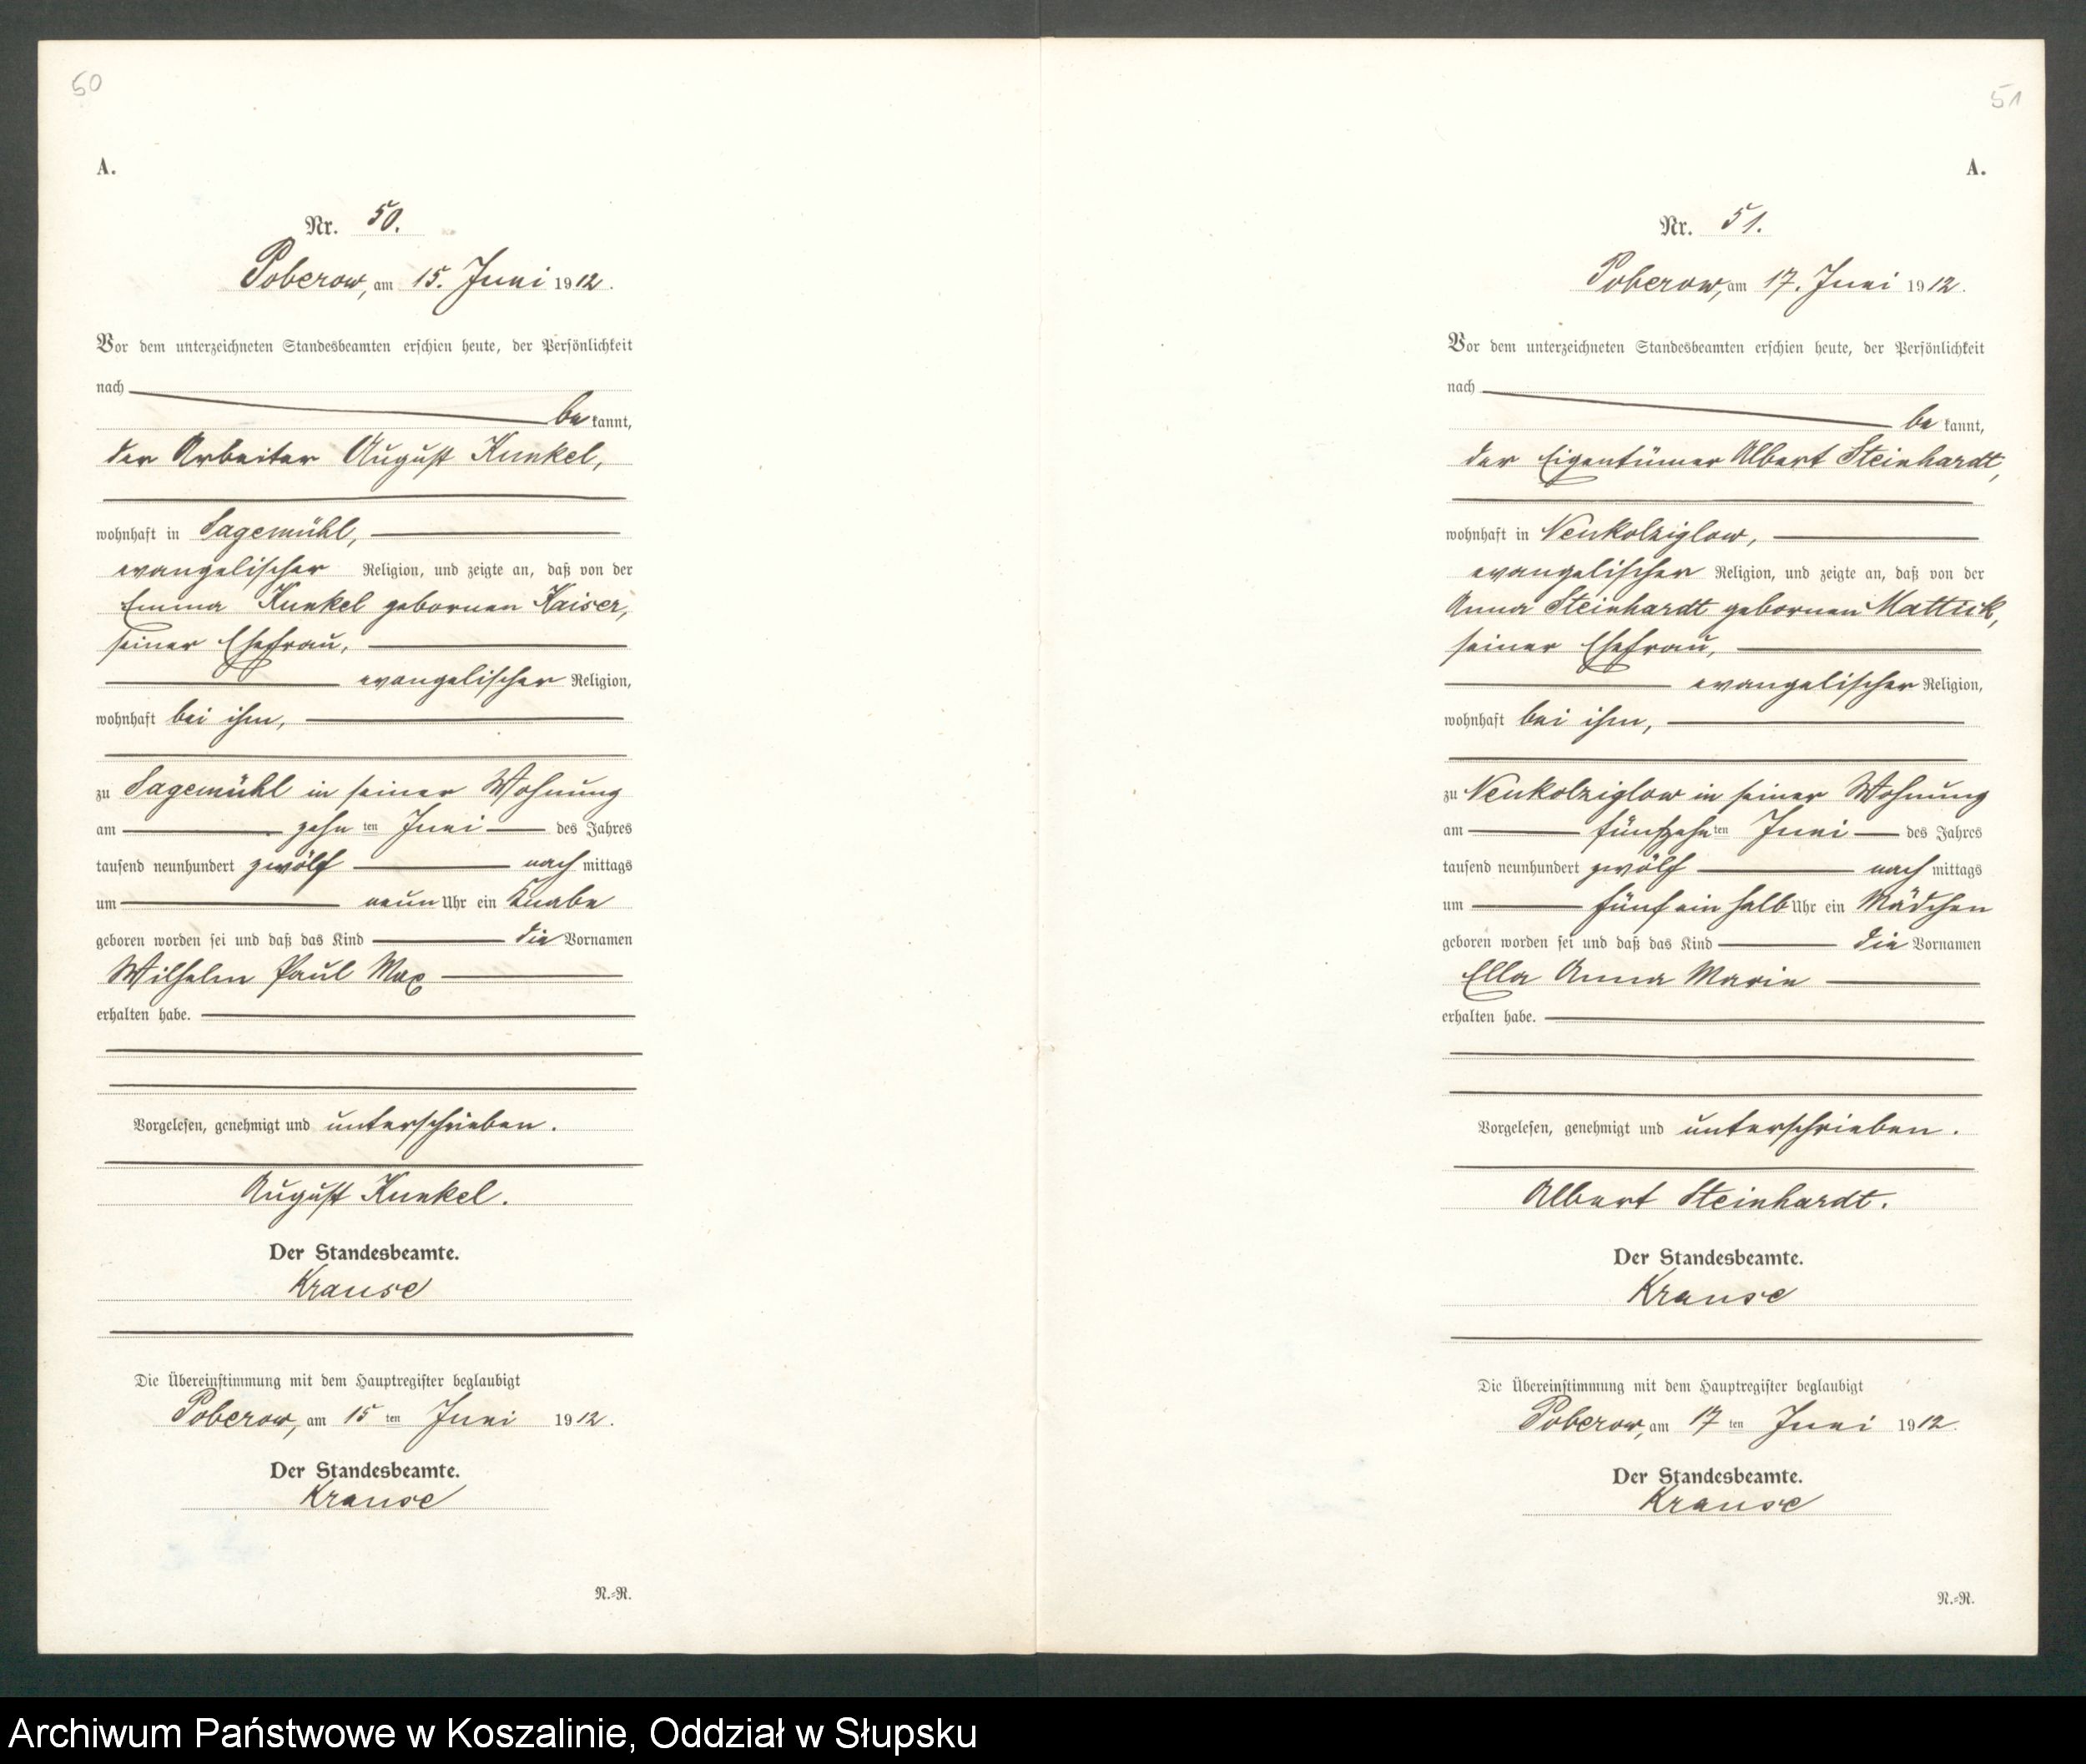 50
A.
Nr. 50.
Poberow, am 15. Juni 1912.
Vor dem unterzeichneten Standesbeamten erschien heute, der Persönlichkeit
nach
be kannt,
der Arbeiter August Kunkel,
wohnhaft in Sagemühl,
evangelischer Religion, und zeigte an, daß von der
Emma Kunkel gebornen Kaiser,
seiner Ehefrau,
evangelischer Religion,
wohnhaft bei ihm,
zu Sagemühl in seiner Wohnung
am zehn ten Juni des Jahres
tausend neunhundert zwölf nach mittags
um neun Uhr ein Knabe
geboren worden sei und daß das Kind die Vornamen
Wilhelm Paul Max
erhalten habe.
Vorgelesen, genehmigt und unterschrieben.
August Kunkel.
Der Standesbeamte.
Krause
Die Übereinstimmung mit dem Hauptregister beglaubigt
Poberow, am 15 ten Juni 1912.
Der Standesbeamte.
Krause
N.-R.
51
A.
Nr. 51.
Poberow, am 17. Juni 1912.
Vor dem unterzeichneten Standesbeamten erschien heute, der Persönlichkeit
nach
be kannt,
der Eigentümer Albert Steinhardt,
wohnhaft in Neukolziglow,
evangelischer Religion, und zeigte an, daß von der
Anna Steinhardt gebornen Mattick,
seiner Ehefrau,
evangelischer Religion,
wohnhaft bei ihm,
zu Neukolziglow in seiner Wohnung
am fünfzehn ten Juni des Jahres
tausend neunhundert zwölf nach mittags
um fünf ein halb Uhr ein Mädchen
geboren worden sei und daß das Kind die Vornamen
Ella Anna Marie
erhalten habe.
Vorgelesen, genehmigt und unterschrieben.
Albert Steinhardt.
Der Standesbeamte.
Krause
Die Übereinstimmung mit dem Hauptregister beglaubigt
Poberow, am 17 ten Juni 1912.
Der Standesbeamte.
Krause
N.-R.
Archiwum Państwowe w Koszalinie, Oddział w Słupsku